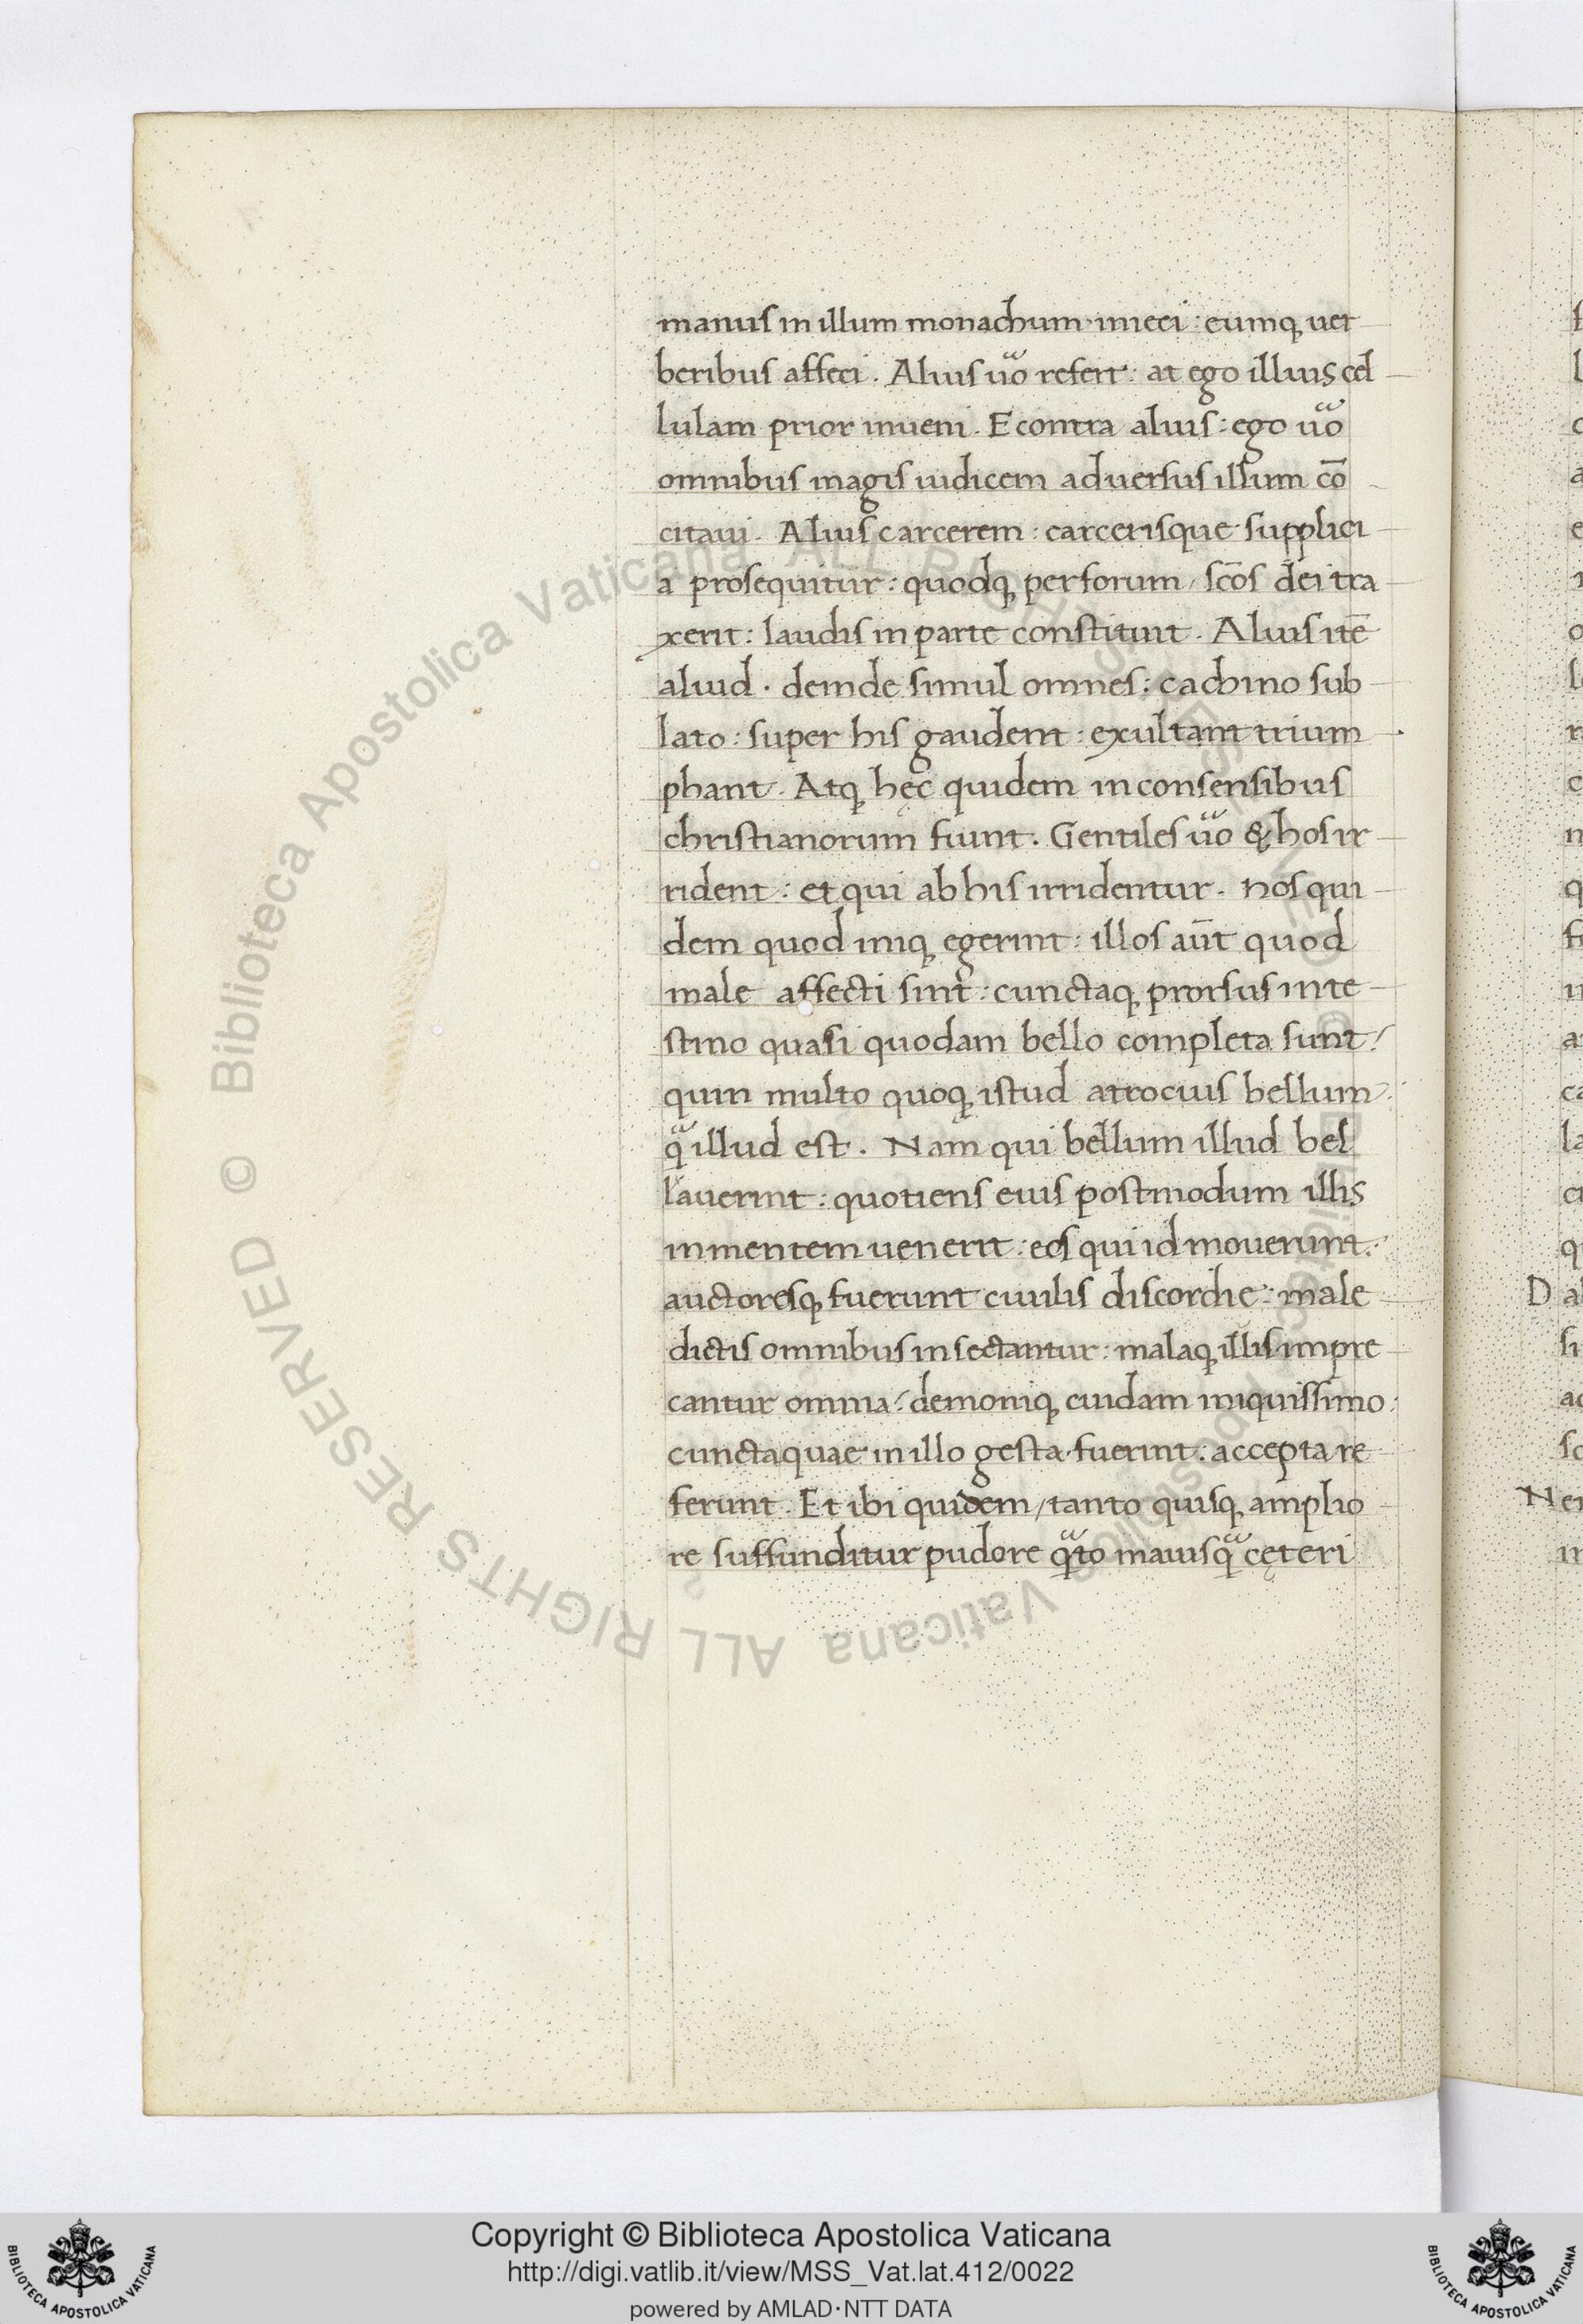 manus in illum monachum inieci : eumq; uer
beribus affeci . Alius uo refert : at ego illius cel
lulam prior inueni . E contra alius : ego uo
omnibus magis iudicem aduersus illum cō
citaui . Alius carcerem : carcerisque supplici
a prosequitur : quodq; per forum / scōs dei tra
xerit : laudis in parte constituit . Alius itē
aliud . deinde simul omnes : cachino sub
lato : super his gaudent : exultant trium
phant . Atq; hęc quidem in consensibus
christianorum fiunt . Gentiles uo & hos ir
rident : et qui ab his irridentur . nos qui
dem quod iniq; egerint : illos aūt quod
male affecti sint : cunctaq; prorsus inte
stino quasi quodam bello completa sunt /
quin multo quoq; istud atrocius bellum /
q illud est . Nam qui bellum illud bel
lauerint : quotiens eius postmodum illis
in mentem uenerit : eos qui id mouerunt /
auctoresq; fuerunt ciuilis discordie : male
dictis omnibus insectantur : malaq; illis impre
cantur omnia / demoniq; cuidam iniquissimo
cuncta quae in illo gesta fuerint : accepta re
ferunt . Et ibi quidem / tanto quisq; amplio
re suffunditur pudore qto maius q cęteri
D
N
© Biblioteca Apostolica Vaticana ALL RIGHTS RESERVED
Copyright © Biblioteca Apostolica Vaticana
http://digi.vatlib.it/view/MSS_Vat.lat.412/0022
powered by AMLAD·NTT DATA
BIBLIOTECA APOSTOLICA VATICANA
BIBLIOTECA APOSTOLICA VATICANA